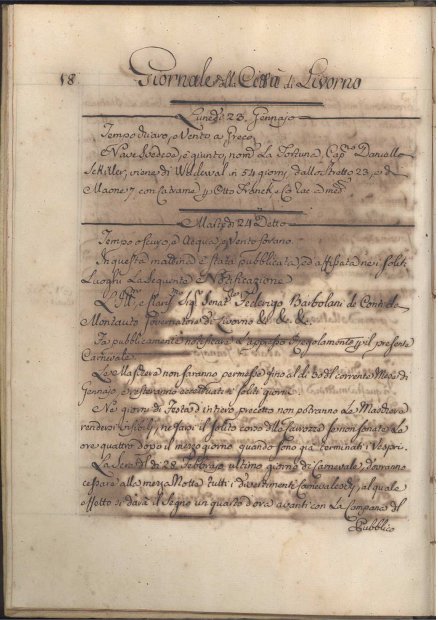 18.
Giornale della Città di Livorno
Lunedì 23. Gennajo
Tempo vario, e Vento a Greco.
Nave Svedese, è giunto, nom.ª La Fortuna, Cap.º Daniello
Schiller, viene di in 54 giorni, dallo Stretto 23, e da
Maone 7. con Catrame p Otto Franck, e Co
Mart.di 24 Detto
Tempo oscuro, e Acqua, e Vento sovano.
In questa mattina è stata pubblicata, ed affissata nei soliti
Luoghi La Seguente Notificazione
L'Ill.mo e Clariss.mo Sig.r Senat.re Federigo Barbolani de Conti da
Montauto Governatore di Livorno &c. &c. &c.
Fa pubblicamente notificare L'appresso Regolamento p il presente
Carnevale
Le Maschere non saranno permesse sino al dì 30 del corrente Mese di
Gennajo, e resteranno eccettuati i soliti giorni
Ne' giorni di Festa d'intiero precetto non potranno Le Maschere
rendersi visibili, ne farsi il solito corso delle Carrozze se non sonate Le
ore quattro dopo il mezzo giorno, quando sono già terminati i Vespri.
La Sera del dì 28 Febbrajo ultimo giorno di Carnevale, dovranno
cessare alla mezza Notte tutti i divertimenti Carnevaleschi, al quale
effetto si darà il Segno un quarto d'ora avanti con La Campana del
Pubblico